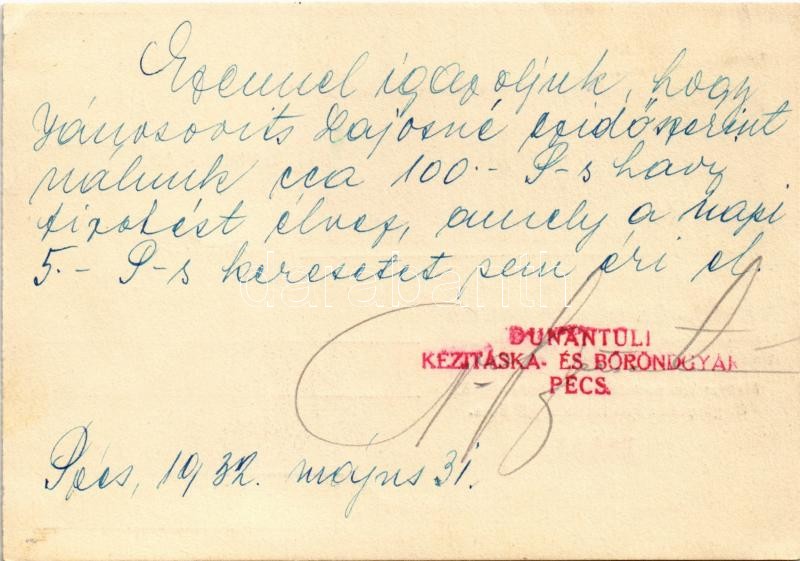 Ezennel igazoljuk, hogy
Jánosovits Lajosné ezidőszerint
nálunk cca 100.- P-s havi
fizetést élvez, amely a napi
5.- P-s keresetet sem éri el.
darabanth
DUNÁNTULI
KÉZITÁSKA- ÉS BÖRÖNDGYÁR
PÉCS.
Pécs, 1932. május 31.